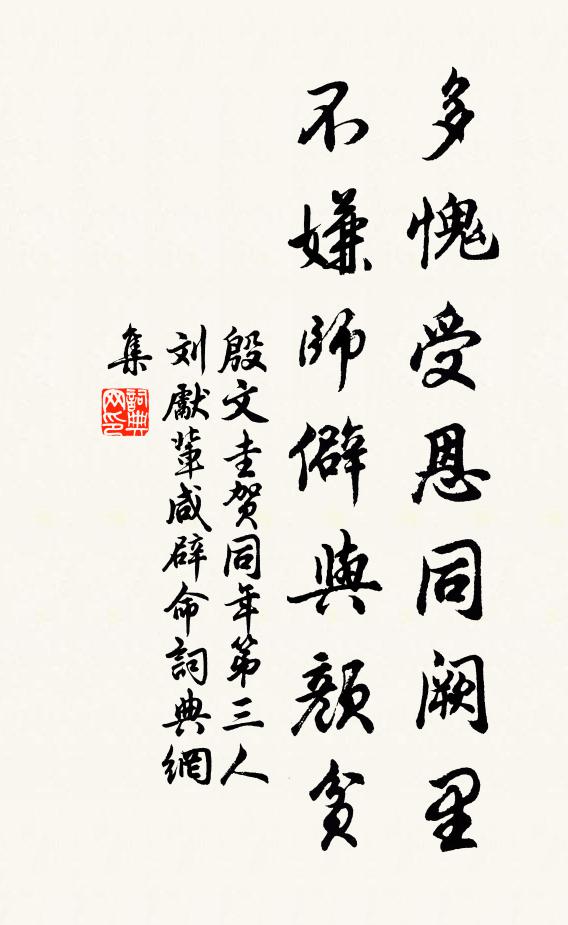 多愧受恩同阙里
不嫌師僻與顏貧
殷文圭贺同年第三人
刘獻輩咸辟命詞典網
集
詞典
网印